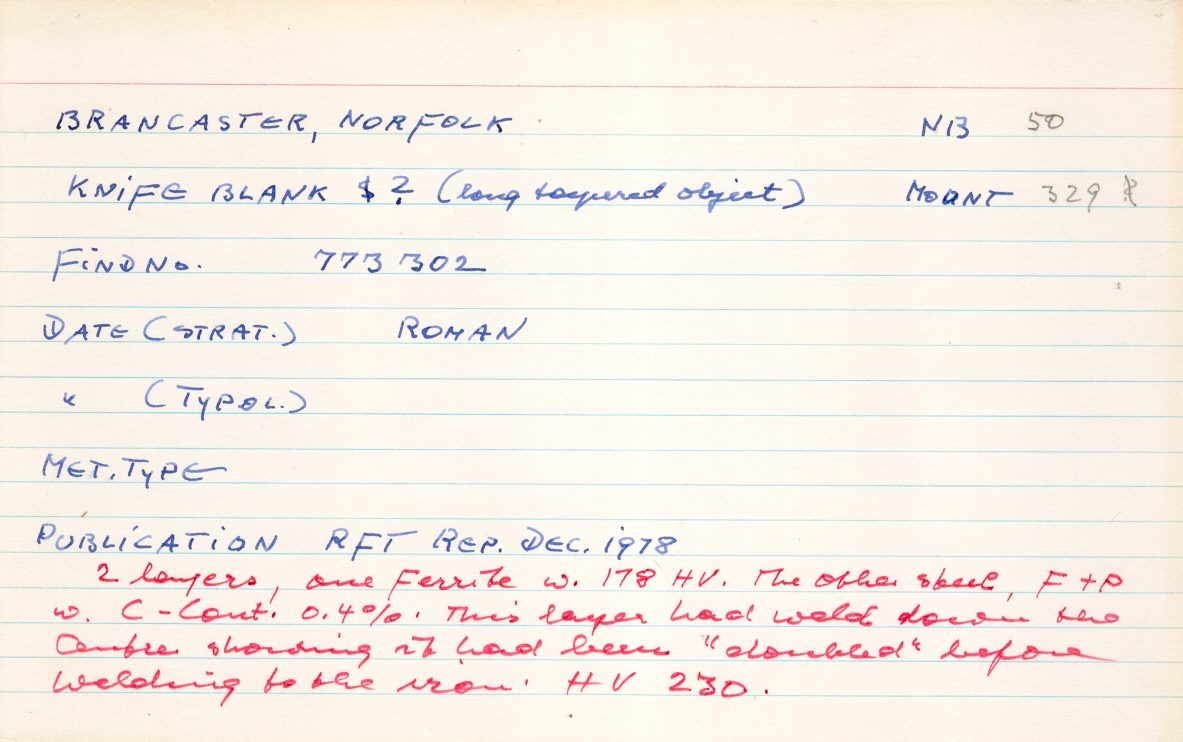 BRANCASTER, NORFOLK NB 50
KNIFE BLANK $ ? (long tapered object) MOUNT 329
FIND NO. 773 302
DATE (STRAT.) ROMAN
" (TYPOL.)
MET. TYPE
PUBLICATION RFT REP. DEC. 1978
2 layers, one Ferrite w. 178 HV. The other steel, F + P
w. C-Cont. 0.4%. This layer had weld down the
Centre showing it had been "doubled" before
Welding to the iron. HV 230.